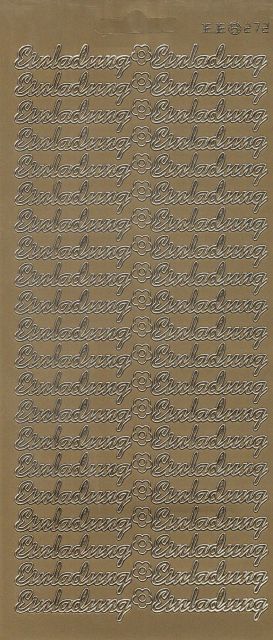 Einladung Einladung
Einladung Einladung
Einladung Einladung
Einladung Einladung
Einladung Einladung
Einladung Einladung
Einladung Einladung
Einladung Einladung
Einladung Einladung
Einladung Einladung
Einladung Einladung
Einladung Einladung
Einladung Einladung
Einladung Einladung
Einladung Einladung
Einladung Einladung
Einladung Einladung
Einladung Einladung
Einladung Einladung
Einladung Einladung
Einladung Einladung